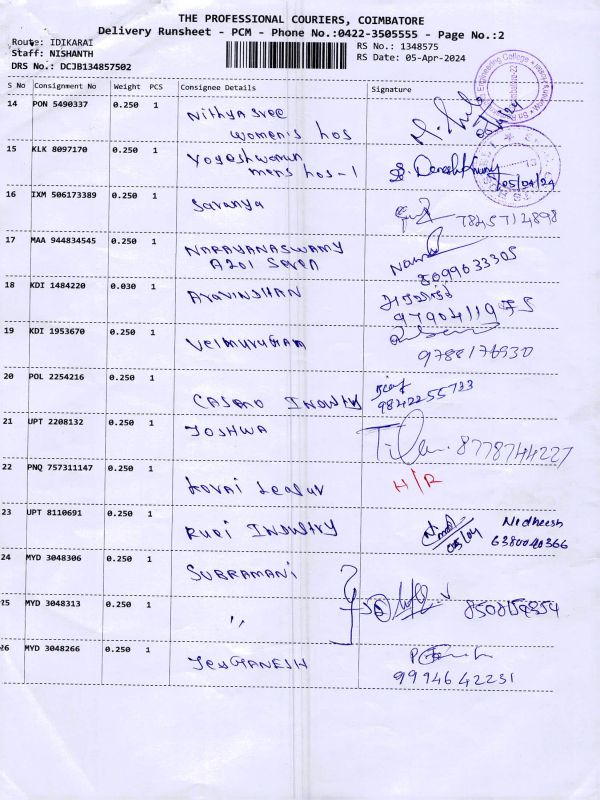 THE PROFESSIONAL COURIERS, COIMBATORE
Delivery Runsheet - PCM - Phone No.:0422-3505555 - Page No.:2
Route: IDIKARAI
RS No.: 1348575
Staff: NISHANTH
RS Date: 05-Apr-2024
DRS No.: DCJB134857502
S No Consignment No Weight PCS Consignee Details Signature
14 PON 5490337 0.250 1 Nithya Sree
women's hos
15 KLK 8097170 0.250 1 Yogeshwaran
mens hos-1
05/04/24
16 IXM 506173389 0.250 1 Saranya
7845714898
17 MAA 944834545 0.250 1 NARAYANASWAMY
A201 Seven
8099633305
18 KDI 1484220 0.030 1 Aravindhan
19 KDI 1953670 0.250 1 Velmurugan
9788176930
20 POL 2254216 0.250 1 Industry
9842255723
21 UPT 2208132 0.250 1 JOSHWA
8778744227
22 PNQ 757311147 0.250 1 Kovai
H/R
23 UPT 8110691 0.250 1 Industry
05/04
Nidheesh
6380040366
24 MYD 3048306 0.250 1 SUBRAMANI
25 MYD 3048313 0.250 1 ,,
26 MYD 3048266 0.250 1 GANESH
9994642231